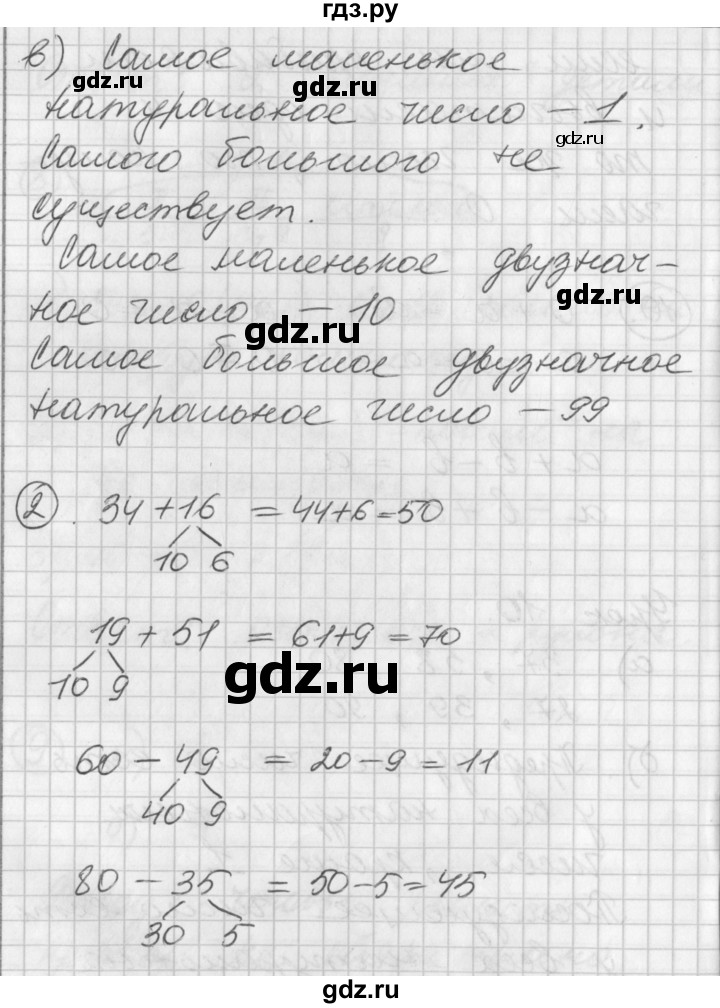 гдз.ру
в) Самое маленькое
gdz.ru
gdz.ru
натуральное число – 1.
gdz.ru
Самого большого не
существует.
Самое маленькое двузнач-
gdz.ru
ное число – 10
gdz.ru
Самое большое двузначное
натуральное число – 99
2. 34 + 16 = 44+6=50
10 6
19 + 51 = 61+9 = 70
gdz.ru
10 9
60 – 49 = 20 – 9 = 11
40 9
80 – 35 = 50–5=45
30 5
gdz.ru
gdz.ru
gdz.ru